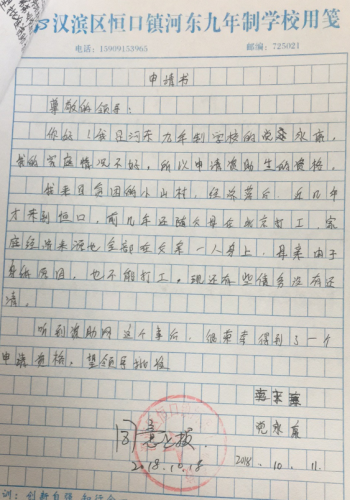 汉滨区恒口镇河东九年制学校用笺
电话：15909153965 邮编：725021
申请书
尊敬的领导：
你好！我是河东九年制学校的
我的家庭情况不好，所以申请资助生的资格。
我来自贫困的小山村，近几年
才来到恒口，前几年还随父母在打工，家
庭经济来源也全部在父亲一人身上，母亲由于
身体原因，也不能打工。现还有些债务没有还
清。
听到资助网这个事后，得到了一个
申请资格，望领导批设
同意上报.
2018.10.18
2018.10.11.
训：创新自强